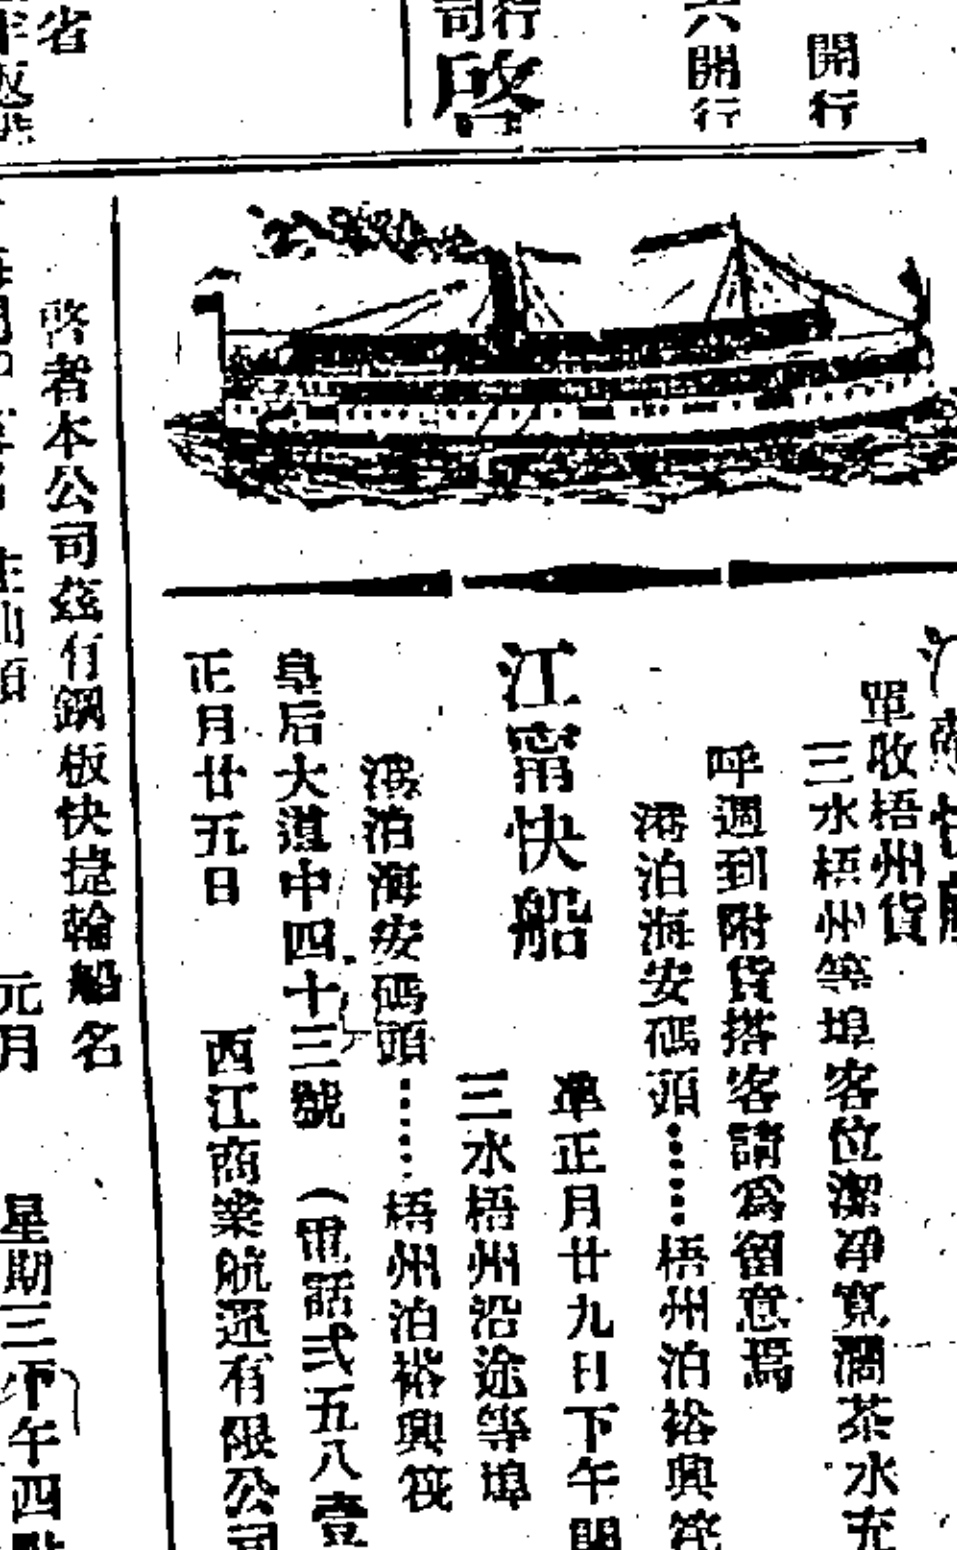 開行
六開行
行
司
啓
省
單收梧州貨
三水梧州等埠客位潔淨寬濶茶水充
呼週到附貨搭客請為留意焉
港泊海安碼頭⋯⋯梧州泊裕興筏
江甯快船
準正月廿九日下午開
三水梧州沿途等埠
港泊海安碼頭⋯⋯梧州泊裕興筏
皇后大道中四十三號 (電話弍五八壹
正月廿五日 西江商業航運有限公司
啓者本公司茲有鋼板快捷輪船名
元月 星期三下午四點